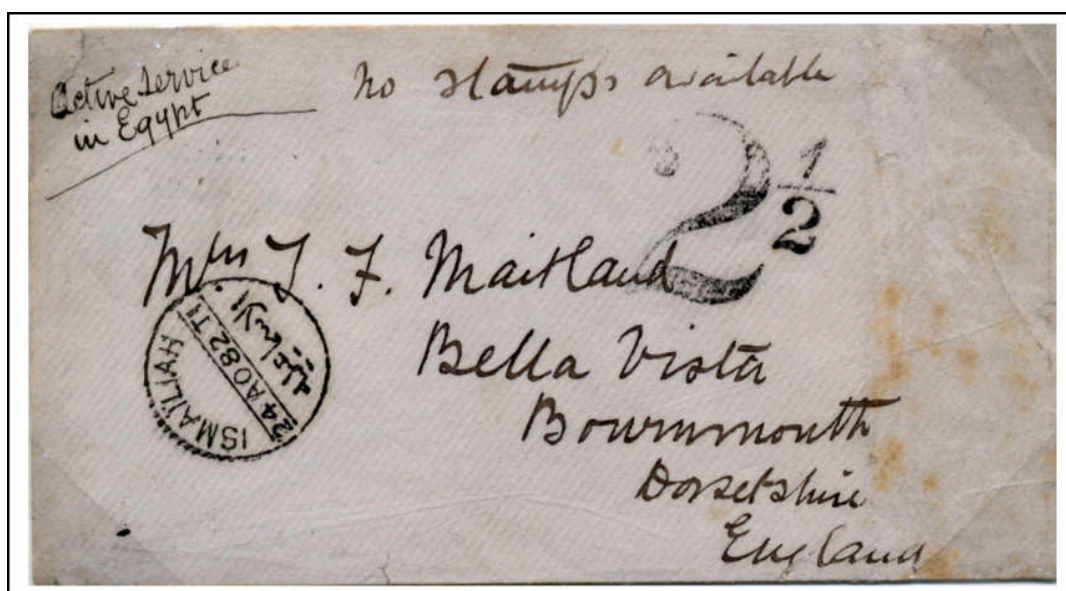 Active Service
in Egypt
No stamps available
2 1/2
Mrs J. F. Maitland
Bella Vista
Bournmouth
Dorsetshire
England
ISMAILIAH
24 AO 82 T1
الاسماعيلية